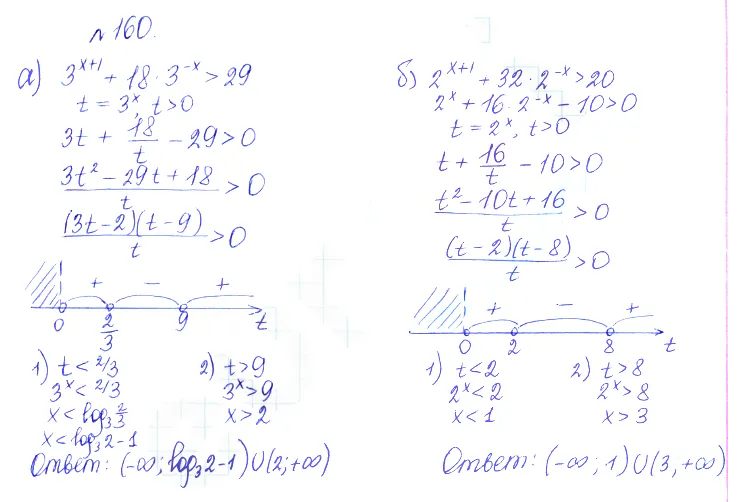 № 160.
а) 3^{x+1} + 18 · 3^{-x} > 29
t = 3^x, t > 0
3t + 18/t - 29 > 0
(3t² - 29t + 18)/t > 0
((3t - 2)(t - 9))/t > 0
+ - +
0 2/3 9 t
1) t < 2/3
3^x < 2/3
x < log₃ 2/3
x < log₃2 - 1
2) t > 9
3^x > 9
x > 2
Ответ: (-∞; log₃2 - 1) ∪ (2; +∞)
б) 2^{x+1} + 32 · 2^{-x} > 20
2^x + 16 · 2^{-x} - 10 > 0
t = 2^x, t > 0
t + 16/t - 10 > 0
(t² - 10t + 16)/t > 0
((t - 2)(t - 8))/t > 0
+ - +
0 2 8 t
1) t < 2
2^x < 2
x < 1
2) t > 8
2^x > 8
x > 3
Ответ: (-∞; 1) ∪ (3, +∞)